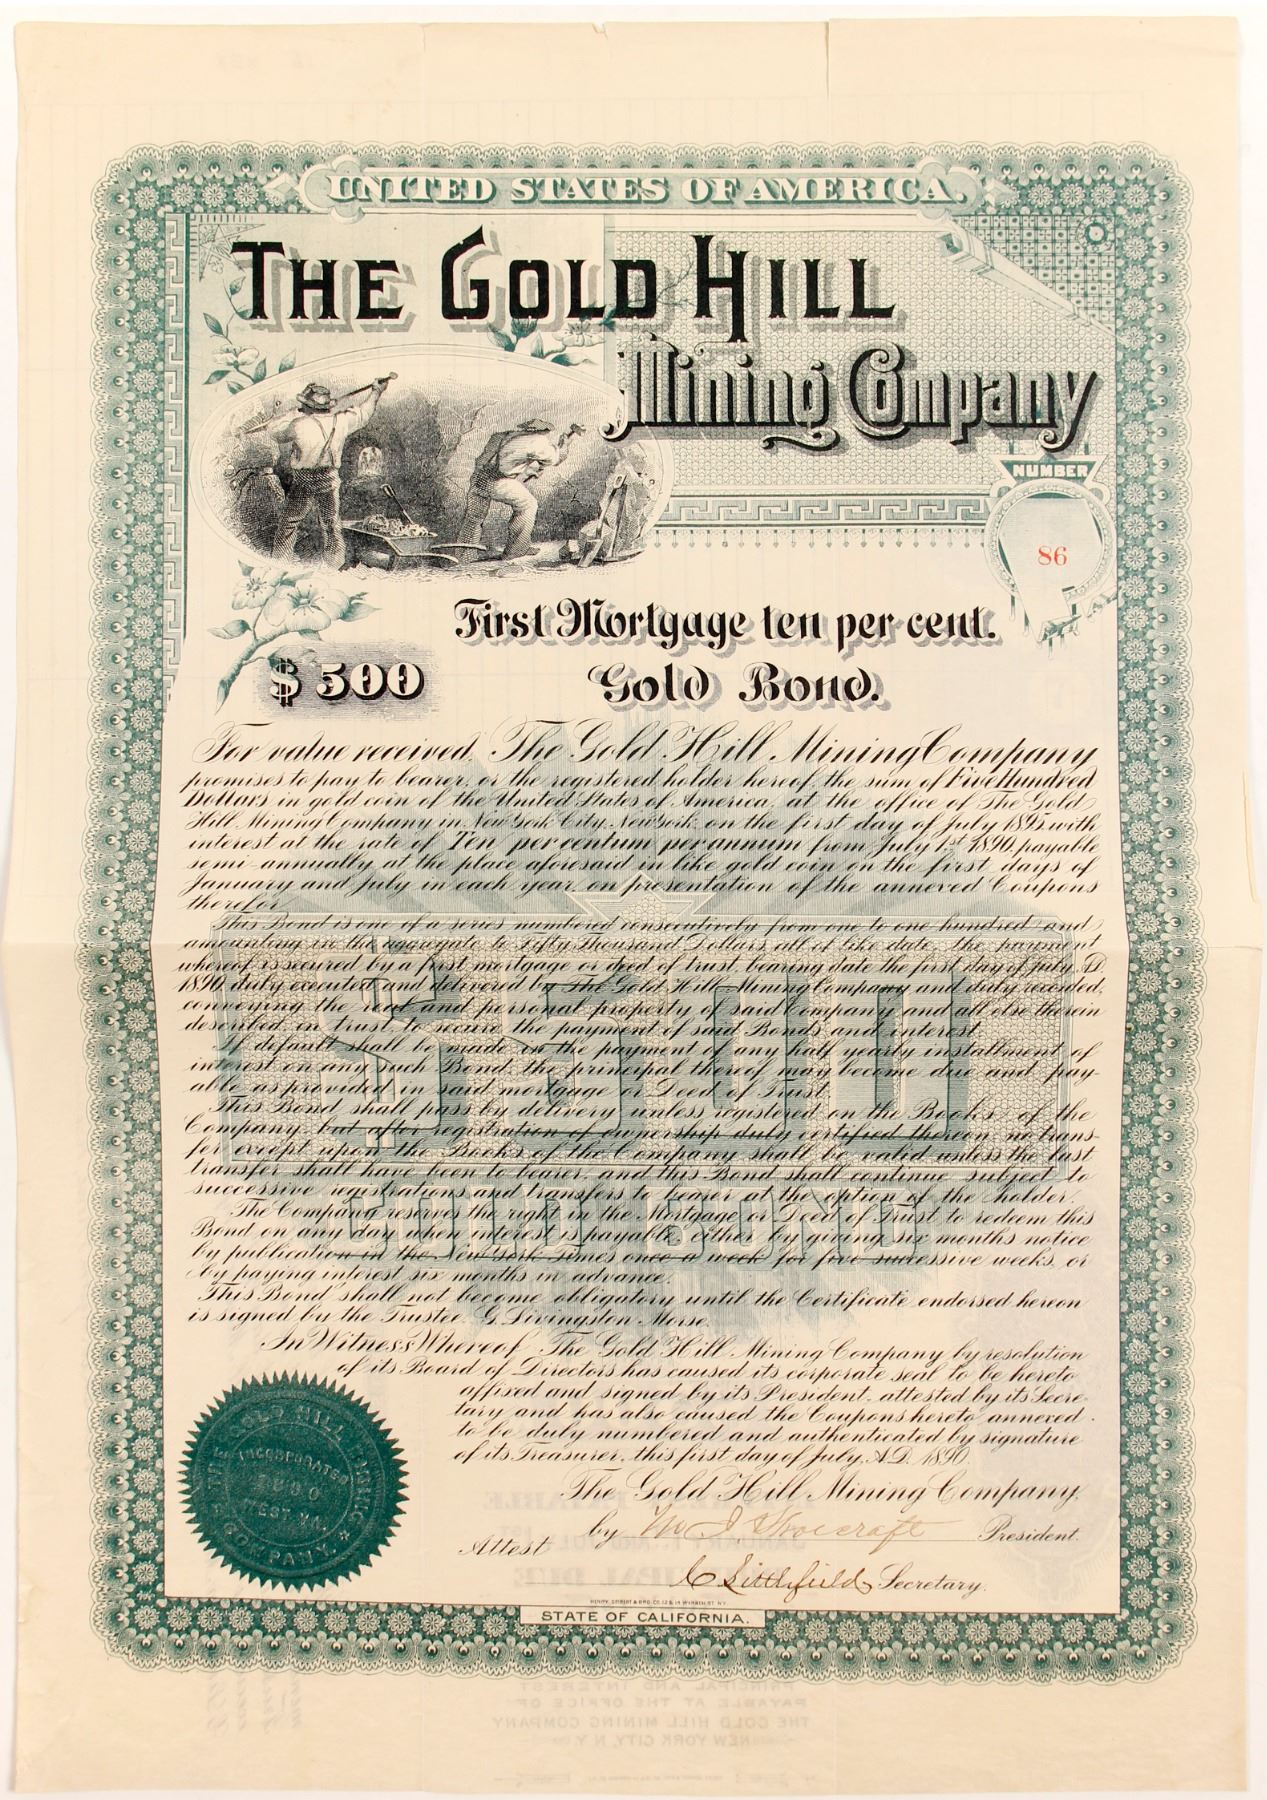 UNITED STATES OF AMERICA.
THE GOLD HILL
Mining Company
NUMBER
86
First Mortgage ten per cent.
$500
Gold Bond.
For value received, The Gold Hill Mining Company
promises to pay to bearer, or the registered holder hereof, the sum of Five Hundred
Dollars in gold coin of the United States of America, at the office of The Gold
Hill Mining Company in New York City, New York, on the first day of July 1895, with
interest at the rate of Ten per centum per annum from July 1st 1890, payable
semi-annually at the place aforesaid in like gold coin on the first days of
January and July in each year, on presentation of the annexed Coupons
therefor.
This Bond is one of a series numbered consecutively from one to one hundred and
amounting in the aggregate to Fifty Thousand Dollars, all of like date, the payment
whereof is secured by a first mortgage or deed of trust, bearing date the first day of July, A.D.
1890, duly executed and delivered by The Gold Hill Mining Company and duly recorded,
conveying the real and personal property of said Company and all else therein
described, in trust, to secure the payment of said Bonds and interest.
If default shall be made in the payment of any half yearly installment of
interest on any such Bond, the principal thereof may become due and pay-
able as provided in said mortgage or Deed of Trust.
This Bond shall pass by delivery unless registered on the Books of the
Company, but after registration of ownership duly certified thereon, no trans-
fer except upon the Books of the Company shall be valid unless the last
transfer shall have been to bearer, and this Bond shall continue subject to
successive registrations and transfers to bearer at the option of the holder.
The Company reserves the right in the Mortgage or Deed of Trust to redeem this
Bond on any day when interest is payable, either by giving six months notice
by publication in the New York Times once a week for five successive weeks, or
by paying interest six months in advance.
This Bond shall not become obligatory until the Certificate endorsed hereon
is signed by the Trustee, G. Livingston Morse.
In Witness Whereof The Gold Hill Mining Company by resolution
of its Board of Directors has caused its corporate seal to be hereto
affixed and signed by its President, attested by its Secre-
tary and has also caused the Coupons hereto annexed
to be duly numbered and authenticated by signature
of its Treasurer, this first day of July, A.D. 1890.
The Gold Hill Mining Company,
by President.
Attest
C Littlefield Secretary.
THE GOLD HILL MINING COMPANY.
INCORPORATED
STATE OF CALIFORNIA.
PRINCIPAL AND INTEREST
PAYABLE AT THE OFFICE OF
THE GOLD HILL MINING COMPANY
NEW YORK CITY, N.Y.